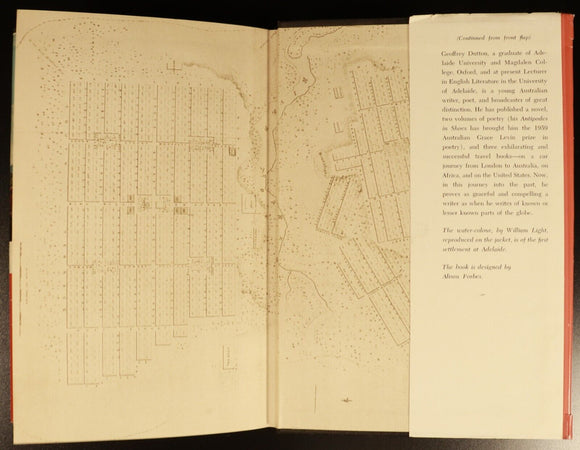 (Continued from front flap)
Geoffrey Dutton, a graduate of Ade-
laide University and Magdalen Col-
lege, Oxford, and at present Lecturer
in English Literature in the University
of Adelaide, is a young Australian
writer, poet, and broadcaster of great
distinction. He has published a novel,
two volumes of poetry (his Antipodes
in Shoes has brought him the 1959
Australian Grace Levin prize in
poetry), and three exhilarating and
successful travel books—on a car
journey from London to Australia, on
Africa, and on the United States. Now,
in this journey into the past, he
proves as graceful and compelling a
writer as when he writes of known or
lesser known parts of the globe.
The water-colour, by William Light,
reproduced on the jacket, is of the first
settlement at Adelaide.
The book is designed by
Alison Forbes.